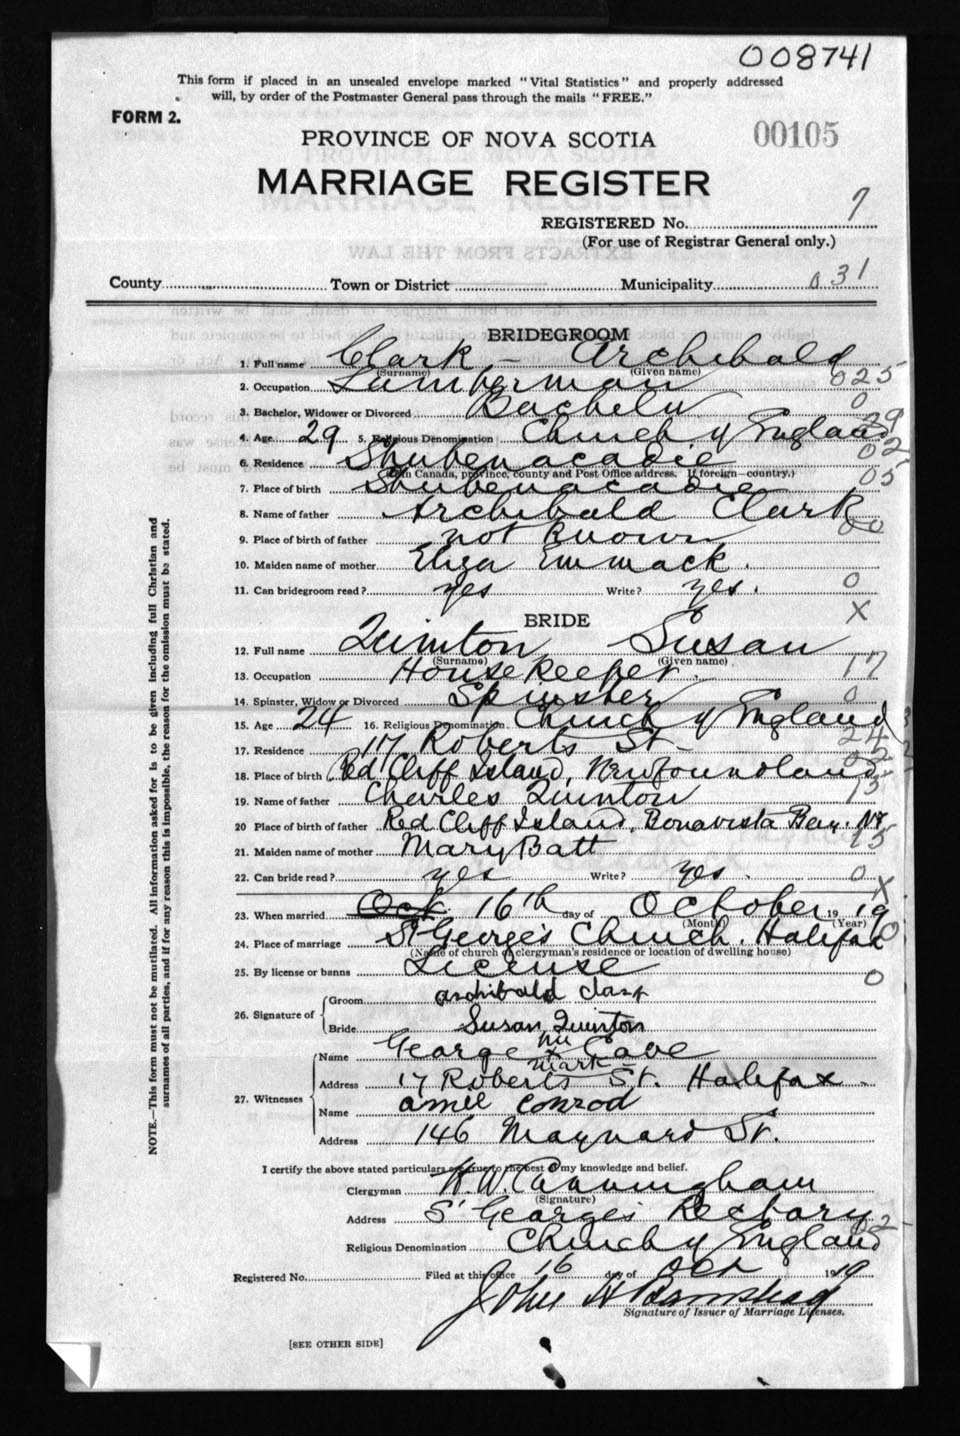 008741
This form if placed in an unsealed envelope marked "Vital Statistics" and properly addressed
will, by order of the Postmaster General pass through the mails "FREE."
FORM 2.
PROVINCE OF NOVA SCOTIA 00105
MARRIAGE REGISTER
REGISTERED No. 7
(For use of Registrar General only.)
County Town or District Municipality 031
BRIDEGROOM
1. Full name Clark - Archibald
(Surname) (Given name)
2. Occupation Lumberman 025
3. Bachelor, Widower or Divorced Bachelor 0
4. Age 29 5. Religious Denomination Church of England 39
6. Residence Shubenacadie 02
(If in Canada, province, county and Post Office address. If foreign—country.)
7. Place of birth Shubenacadie 05
8. Name of father Archibald Clark
9. Place of birth of father not known 00
10. Maiden name of mother Eliza Emmack.
11. Can bridegroom read? yes Write? yes. 0
BRIDE X
12. Full name Quinton Susan
(Surname) (Given name)
13. Occupation Housekeeper. 17
14. Spinster, Widow or Divorced Spinster 0
15. Age 24 16. Religious Denomination Church of England
17. Residence 117 Roberts St- 24
18. Place of birth Red Cliff Island, Newfoundland
19. Name of father Charles Quinton 15
20 Place of birth of father Red Cliff Island, Bonavista Bay. Nf
21. Maiden name of mother Mary Batt 15
22. Can bride read? yes Write? Yes. 0
X
23. When married Oct 16th day of October 1919
(Month) (Year)
24. Place of marriage St George's Church, Halifax
(Name of church or clergyman's residence or location of dwelling house)
25. By license or banns License 0
26. Signature of Groom Archibald Clark
Bride Susan Quinton
27. Witnesses Name George his x mark Cave
Address 17 Roberts St. Halifax.
Name Conrod
Address 146 Maynard St.
I certify the above stated particulars are true to the best of my knowledge and belief.
Clergyman H. W. Cunningham
(Signature)
Address St George's Rectory
Religious Denomination Church of England
Registered No. Filed at this office 16 day of Oct 1919
John H
Signature of Issuer of Marriage Licenses.
[SEE OTHER SIDE]
NOTE.—This form must not be mutilated. All information asked for is to be given including full Christian and
surnames of all parties, and if for any reason this is impossible, the reason for the omission must be stated.